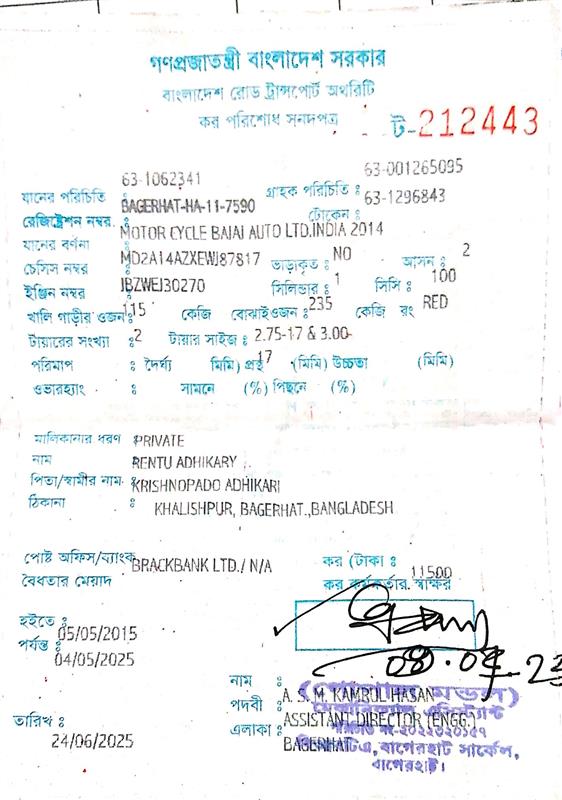 গণপ্রজাতন্ত্রী বাংলাদেশ সরকার
বাংলাদেশ রোড ট্রান্সপোর্ট অথরিটি
কর পরিশোধ সনদপত্র ট-212443
63-1062341 63-001265095
যানের পরিচিতি : গ্রাহক পরিচিতি : 63-1296843
রেজিষ্ট্রেশন নম্বর : BAGERHAT-HA-11-7590 টোকেন :
যানের বর্ণনা MOTOR CYCLE BAJAJ AUTO LTD.INDIA 2014
চেসিস নম্বর MD2A14AZXEWJ87817 ভাড়াকৃত : NO আসন : 2
ইঞ্জিন নম্বর JBZWEJ30270 সিলিন্ডার : 1 সিসি : 100
খালি গাড়ীর ওজন : 115 কেজি বোঝাইওজন : 235 কেজি রং RED
টায়ারের সংখ্যা : 2 টায়ার সাইজ : 2.75-17 & 3.00-
পরিমাপ : দৈর্ঘ্য মিমি) প্রস্থ 17 (মিমি) উচ্চতা (মিমি)
ওভারহ্যাং : সামনে (%) পিছনে (%)
মালিকানার ধরণ : PRIVATE
নাম : RENTU ADHIKARY
পিতা/স্বামীর নাম : KRISHNOPADO ADHIKARI
ঠিকানা : KHALISHPUR, BAGERHAT.,BANGLADESH
পোষ্ট অফিস/ব্যাংক BRACKBANK LTD./ N/A কর (টাকা : 11500
বৈধতার মেয়াদ কর কর্মকর্তার স্বাক্ষর
হইতে : 05/05/2015
পর্যন্ত : 04/05/2025
নাম : A. S. M. KAMRUL HASAN
পদবী : ASSISTANT DIRECTOR (ENGG.)
এলাকা : BAGERHAT
তারিখ : 24/06/2025
বাগেরহাট সার্কেল,
বাগেরহাট।